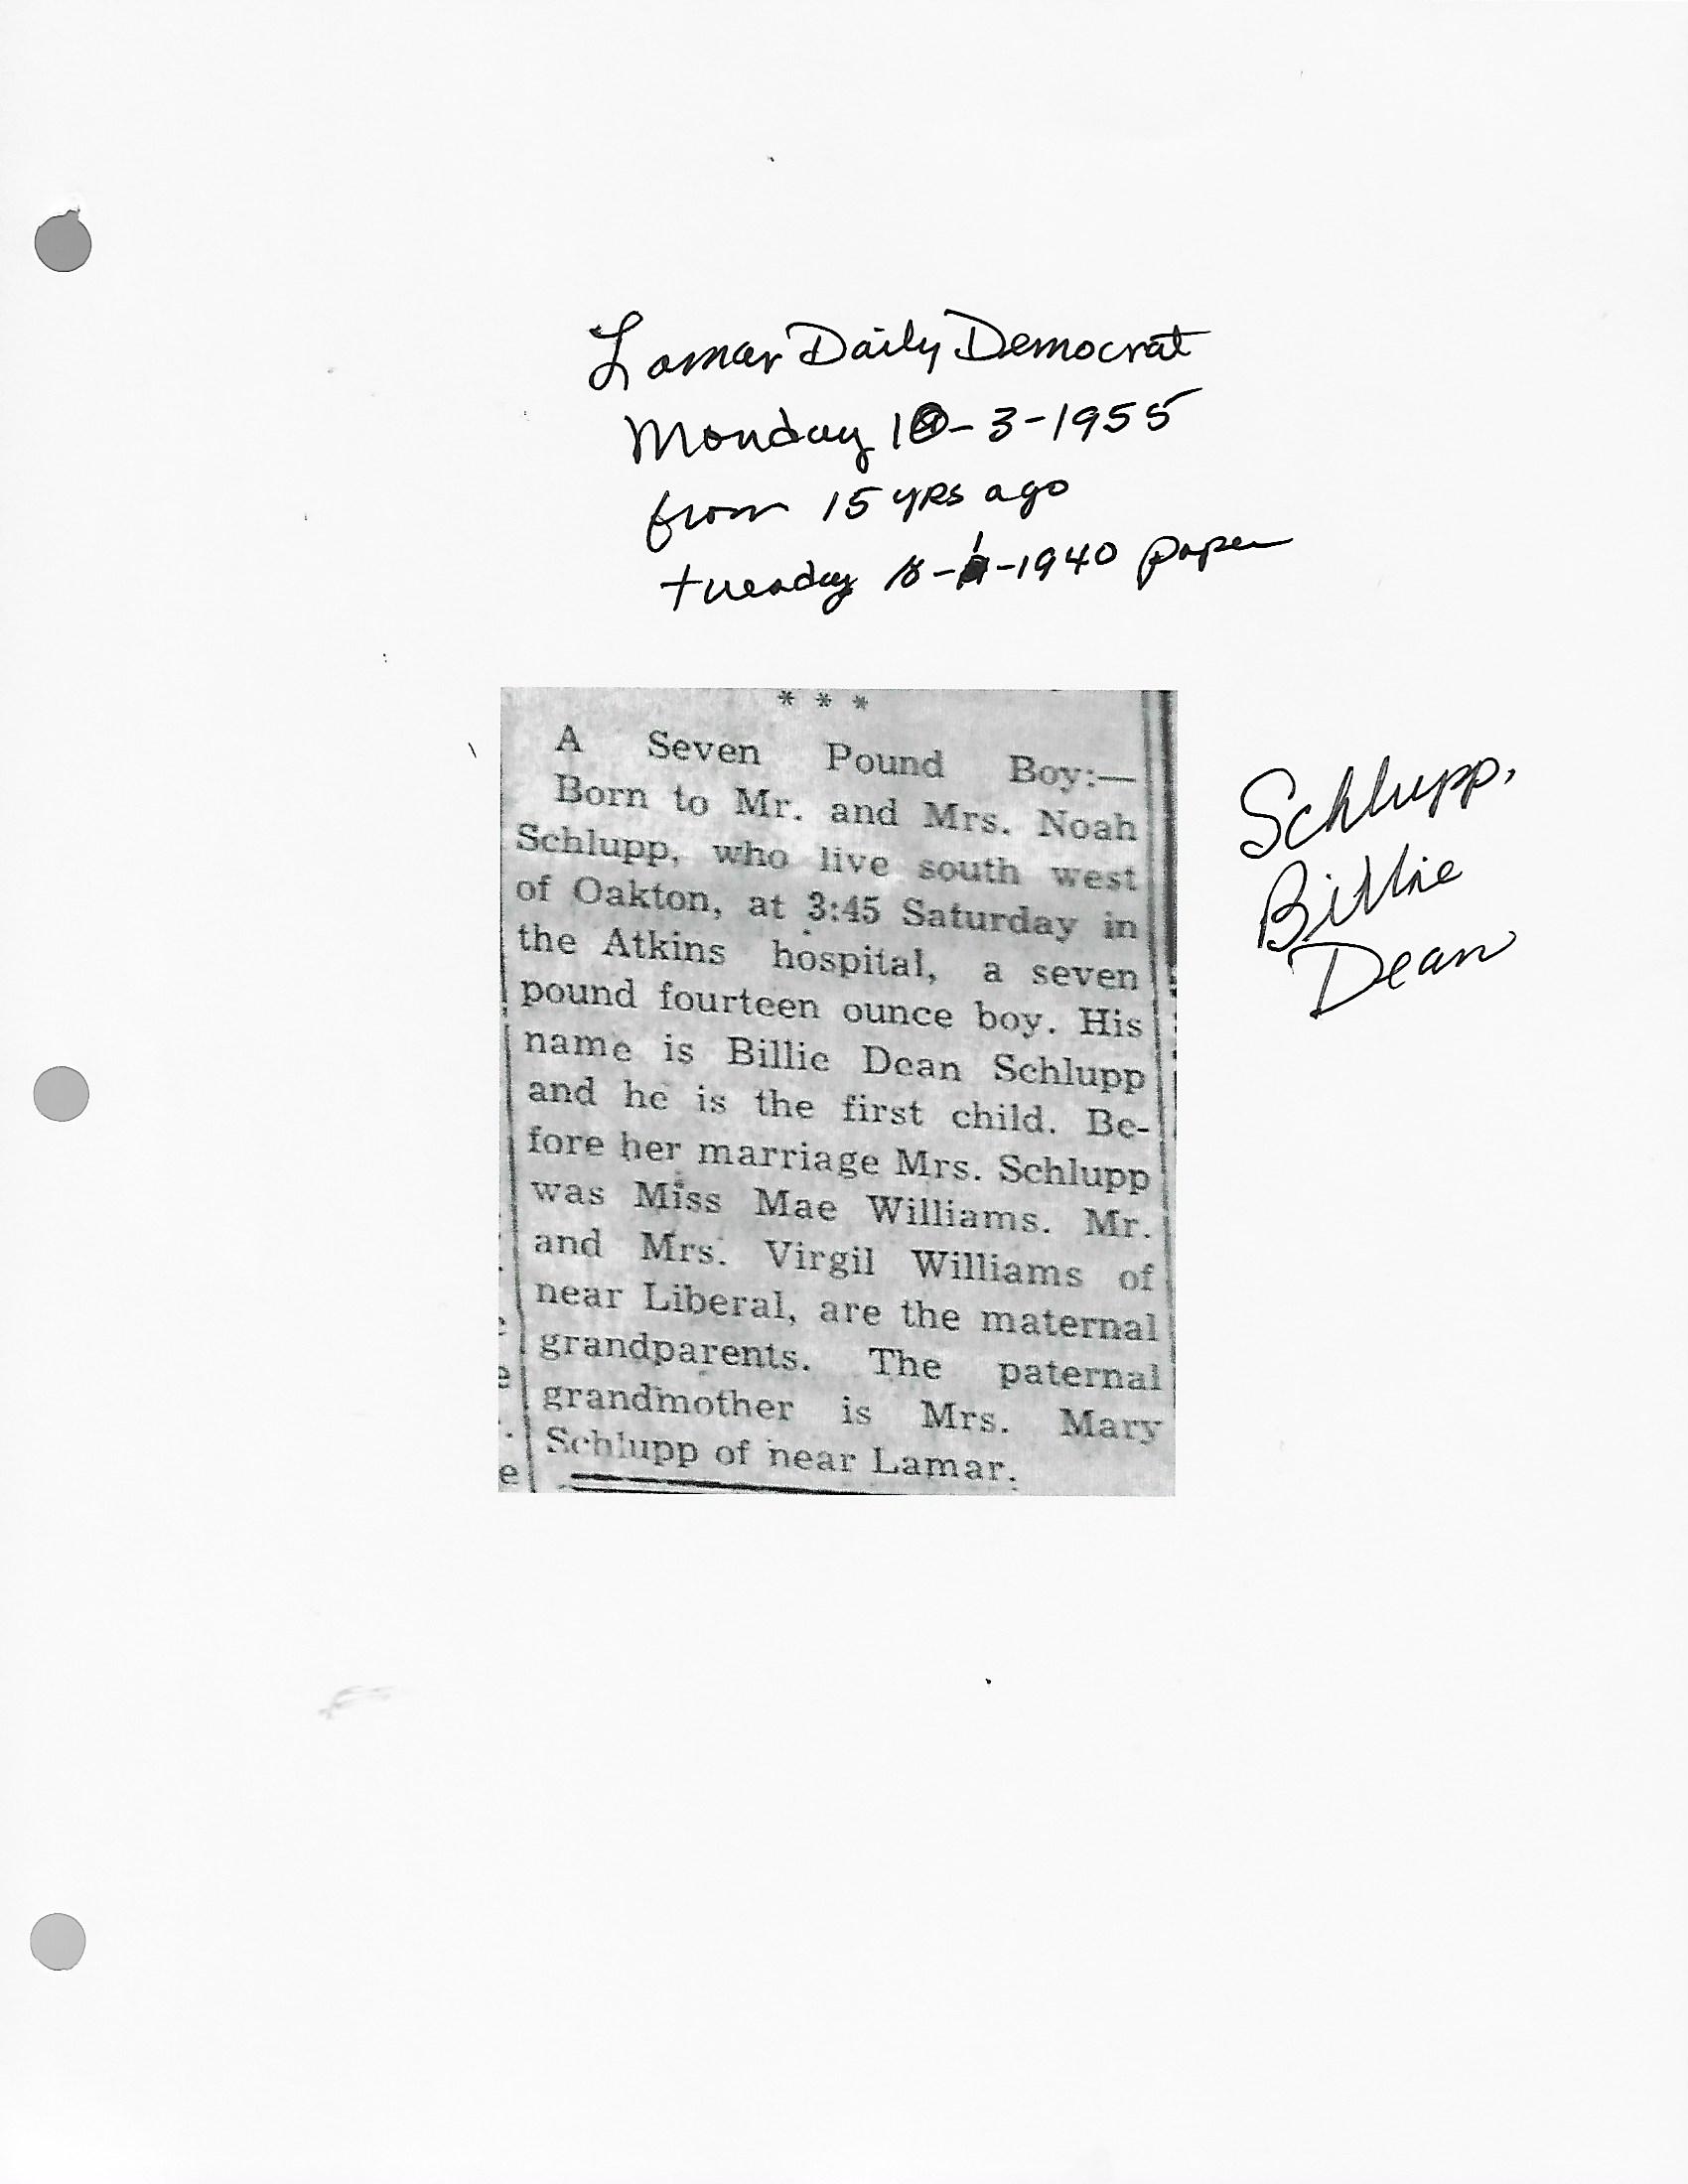 Lamar Daily Democrat
Monday 10-3-1955
from 15 yrs ago
tuesday -1940 paper
* * *
A Seven Pound Boy:—
Born to Mr. and Mrs. Noah
Schlupp, who live south west
of Oakton, at 3:45 Saturday in
the Atkins hospital, a seven
pound fourteen ounce boy. His
name is Billie Dean Schlupp
and he is the first child. Be-
fore her marriage Mrs. Schlupp
was Miss Mae Williams. Mr.
and Mrs. Virgil Williams of
near Liberal, are the maternal
grandparents. The paternal
grandmother is Mrs. Mary
Schlupp of near Lamar.
Schlupp,
Billie
Dean